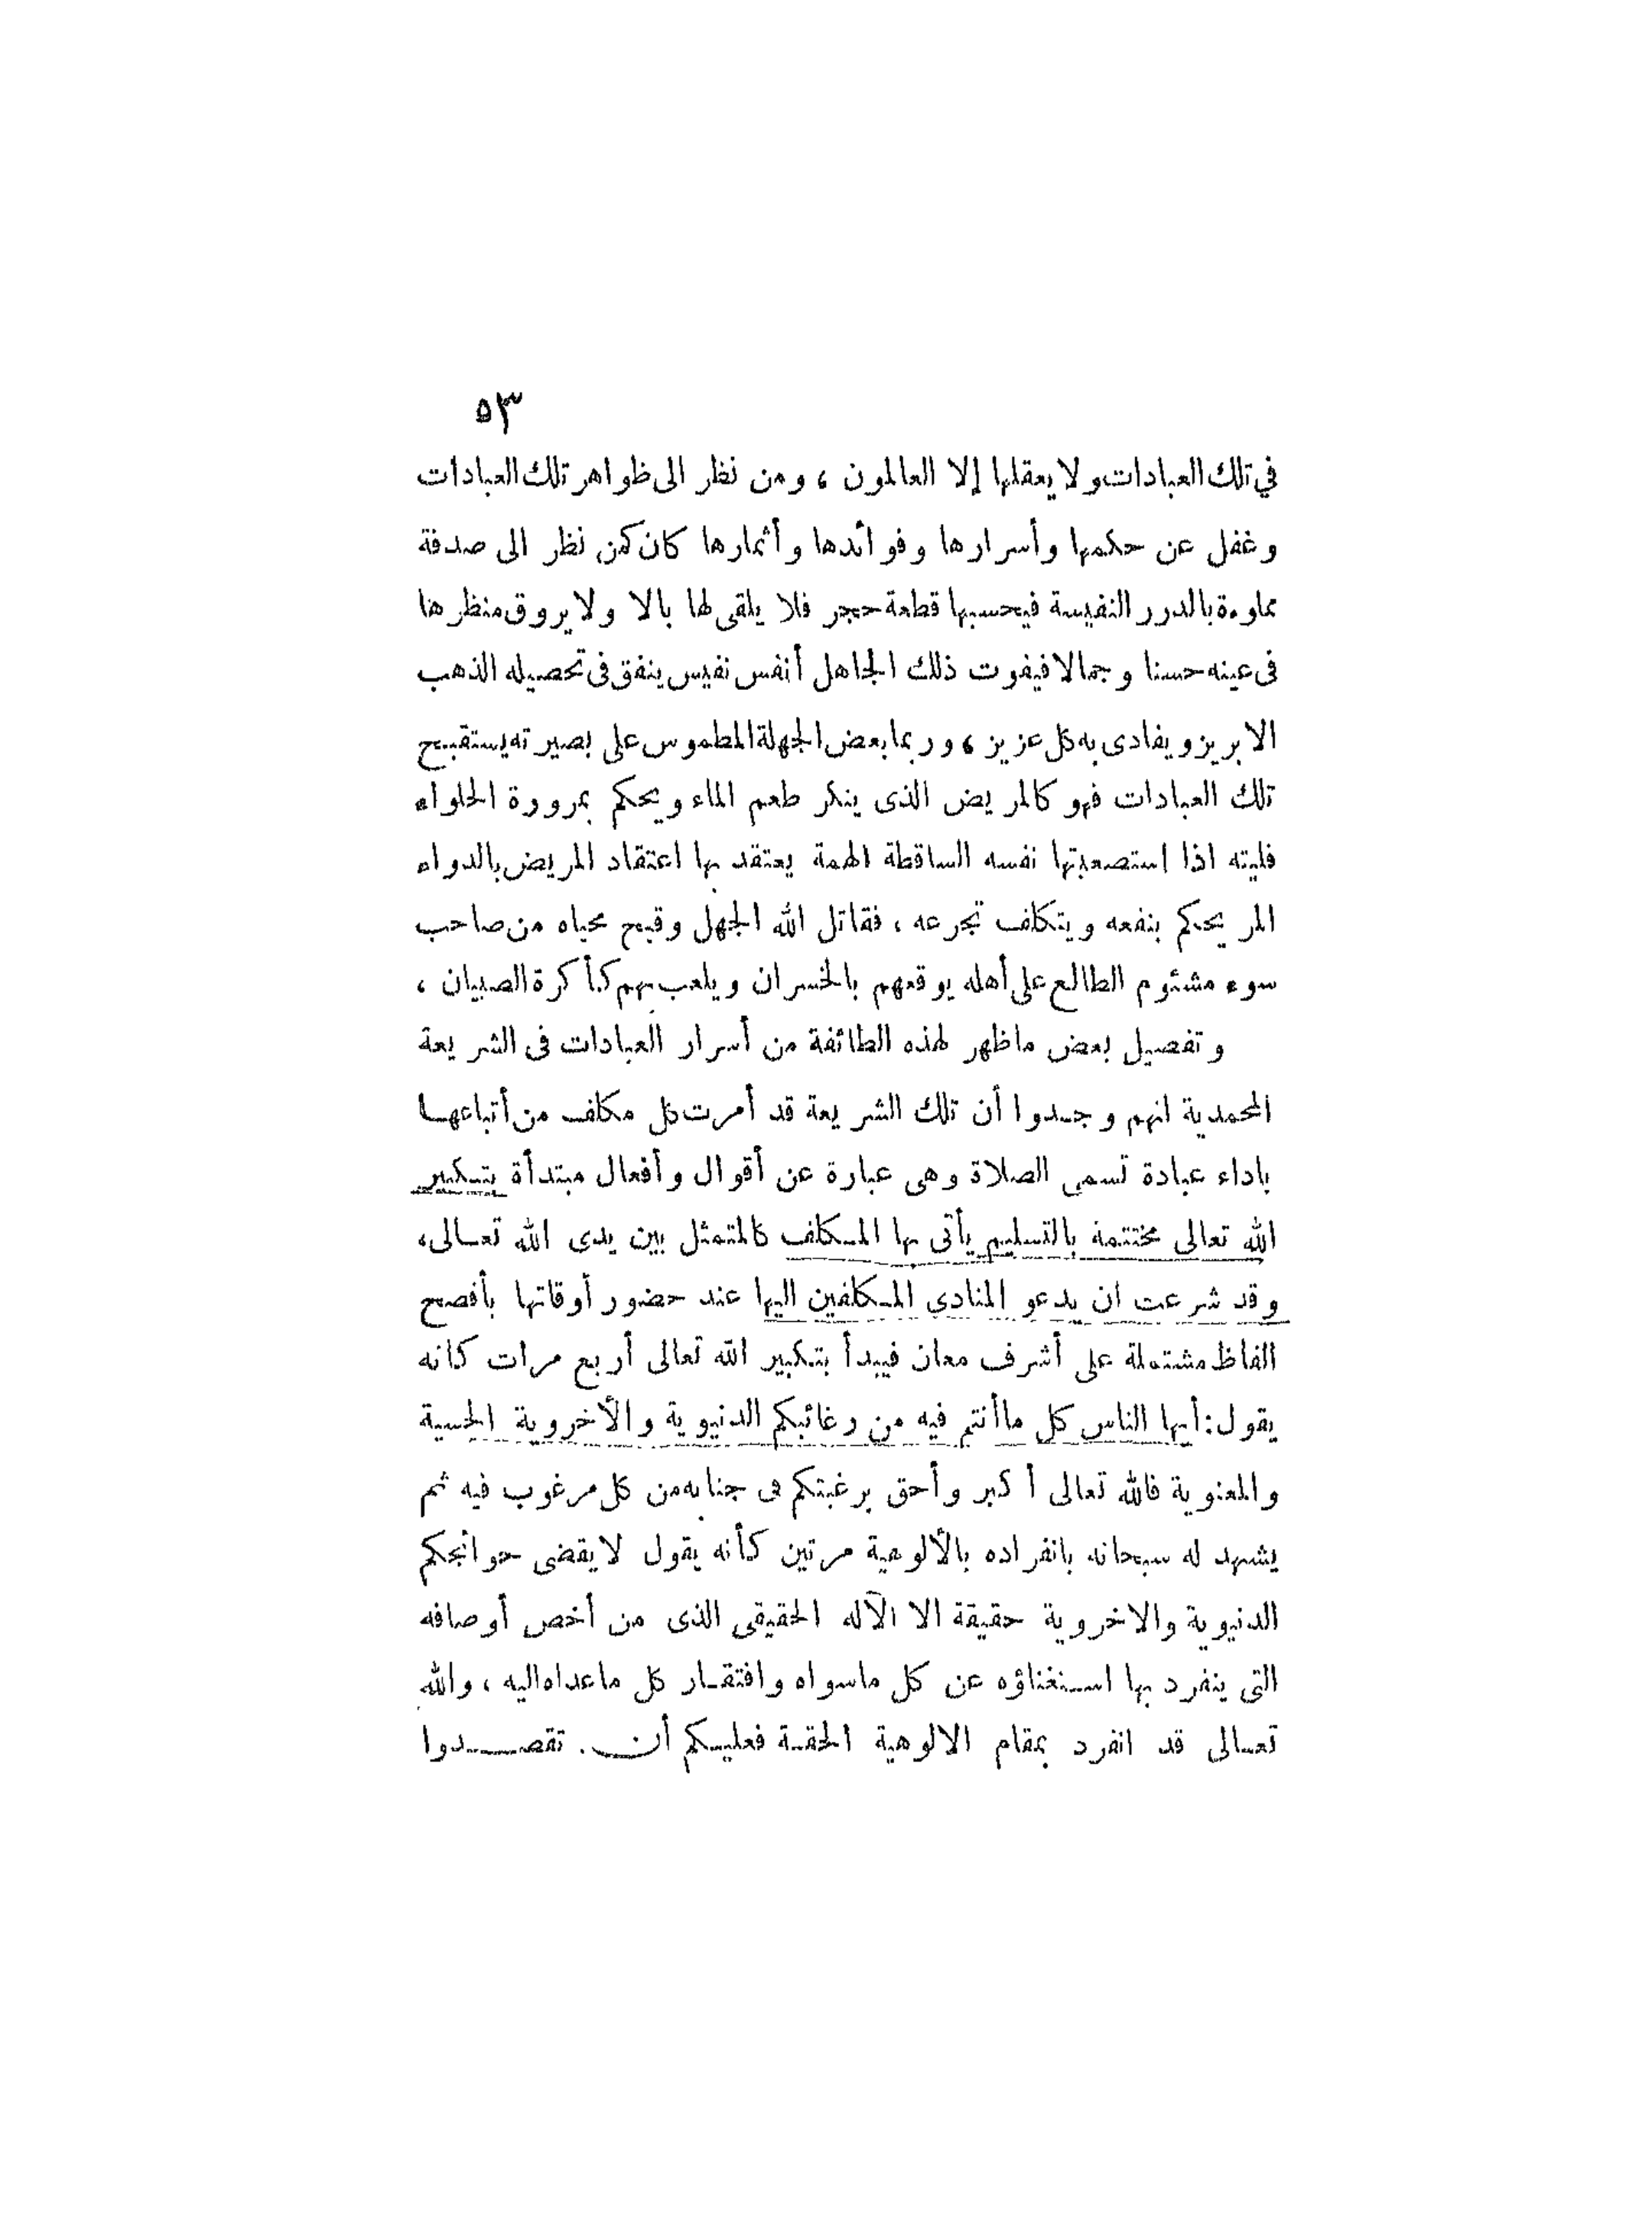 ٥٣
في تلك العبادات ولا يعقلها إلا العالمون ، ومن نظر الى ظواهر تلك العبادات
وغفل عن حكمها وأسرارها وفوائدها وأثمارها كان كمن نظر الى صدفة
مملوءة بالدرر النفيسة فيحسبها قطعة حجر فلا يلقى لها بالا ولا يروق منظرها
فى عينه حسنا وجمالا فيفوت ذلك الجاهل أنفس نفيس ينفق فى تحصيله الذهب
الابريز ويفادى به كل عزيز ، وربما بعض الجهلة المطموس على بصيرته يستقبح
تلك العبادات فهو كالمريض الذى ينكر طعم الماء ويحكم بمرورة الحلواء
فليته اذا استصعبتها نفسه الساقطة الهمة يعتقد بها اعتقاد المريض بالدواء
المر يحكم بنفعه ويتكلف تجرعه ، فقاتل الله الجهل وقبح محياه من صاحب
سوء مشئوم الطالع على أهله يوقعهم بالخسران ويلعب بهم كأكرة الصبيان ،
وتفصيل بعض ما ظهر لهذه الطائفة من أسرار العبادات فى الشريعة
المحمدية انهم وجدوا أن تلك الشريعة قد أمرت كل مكلف من أتباعها
باداء عبادة تسمى الصلاة وهى عبارة عن أقوال وأفعال مبتدأة بتكبير
الله تعالى مختتمة بالتسليم يأتى بها المكلف كالمتمثل بين يدى الله تعالى،
وقد شرعت ان يدعو المنادى المكلفين اليها عند حضور أوقاتها بأفصح
الفاظ مشتملة على أشرف معان فيبدأ بتكبير الله تعالى أربع مرات كانه
يقول: أيها الناس كل ما أنتم فيه من رغائبكم الدنيوية والأخروية الحسية
والمعنوية فالله تعالى أكبر وأحق برغبتكم فى جنابه من كل مرغوب فيه ثم
يشهد له سبحانه بانفراده بالألوهية مرتين كأنه يقول لا يقضى حوائجكم
الدنيوية والاخروية حقيقة الا الآله الحقيقى الذى من أخص أوصافه
التى ينفرد بها استغناؤه عن كل ماسواه وافتقار كل ماعداه اليه ، والله
تعالى قد انفرد بمقام الالوهية الحقة فعليكم أن . تقصدوا